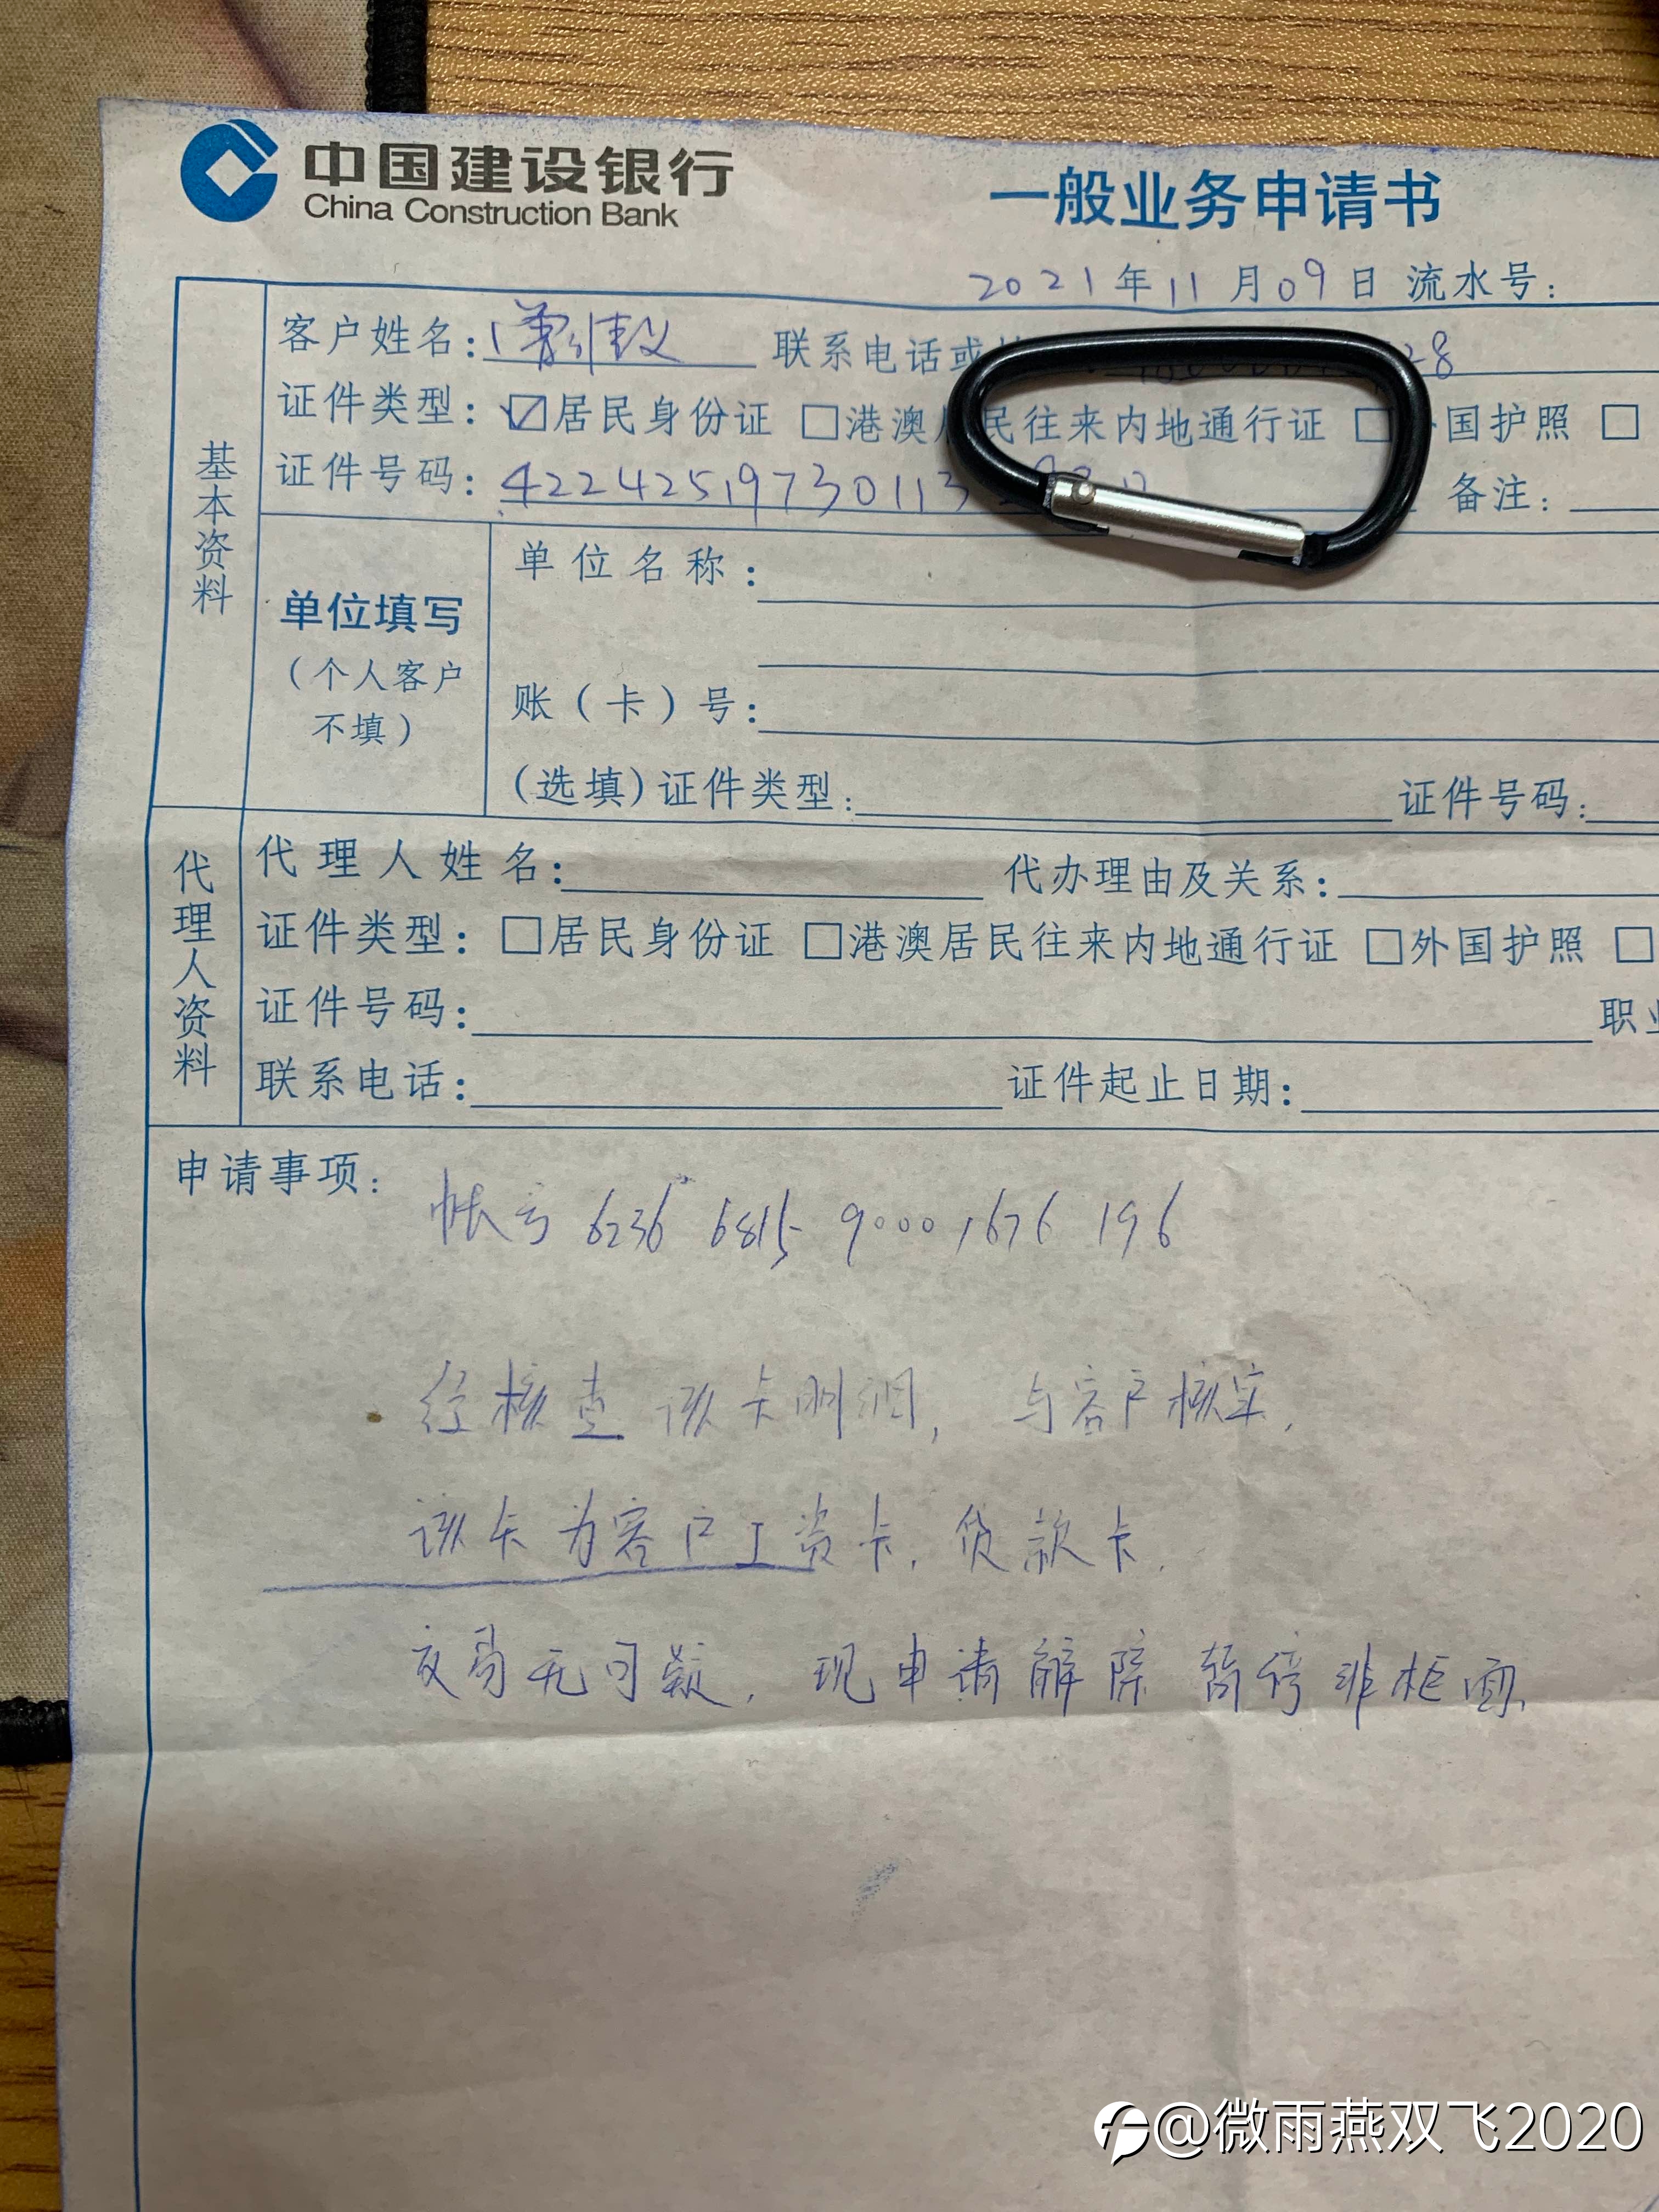 中国建设银行
China Construction Bank
一般业务申请书
2021年11月09日 流水号:
基本资料
客户姓名: 联系电话或 28
证件类型: ☑居民身份证 □港澳居民往来内地通行证 □外国护照 □
证件号码: 42242519730113 备注:
单位填写
(个人客户
不填)
单位名称:
账(卡)号:
(选填)证件类型: 证件号码:
代理人资料
代理人姓名: 代办理由及关系:
证件类型: □居民身份证 □港澳居民往来内地通行证 □外国护照 □
证件号码: 职业
联系电话: 证件起止日期:
申请事项:
帐号 6236 6815 9000 1676 196
经核查该卡明细, 与客户核实,
该卡为客户工资卡, 贷款卡,
交易无可疑, 现申请解除暂停非柜面
@微雨燕双飞2020